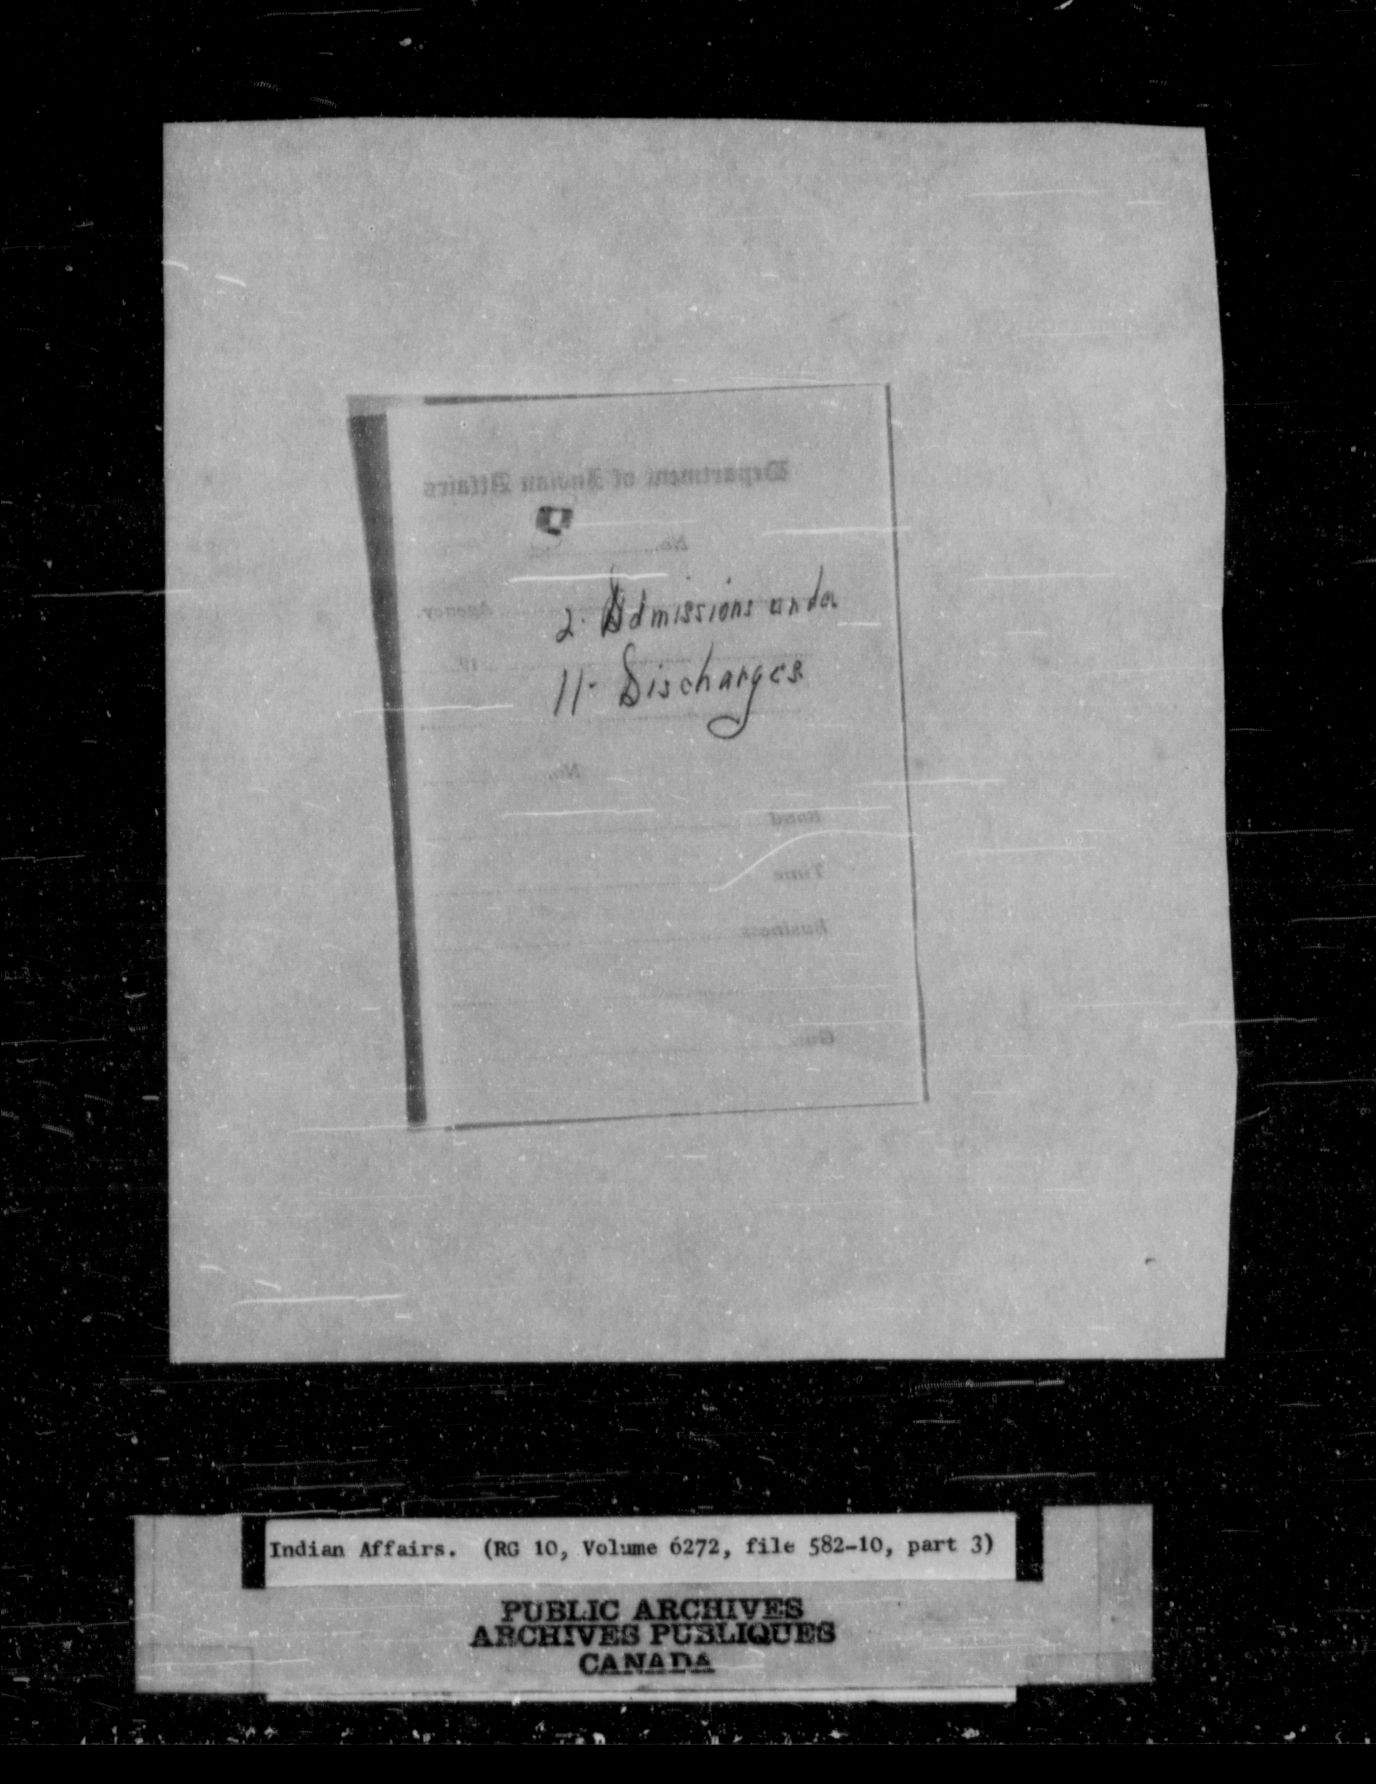 Department of Indian Affairs
No.
Agency.
19
2. Admissions and
11. Discharges
No.
Band
Time
Business
Indian Affairs. (RG 10, Volume 6272, file 582-10, part 3)
PUBLIC ARCHIVES
ARCHIVES PUBLIQUES
CANADA